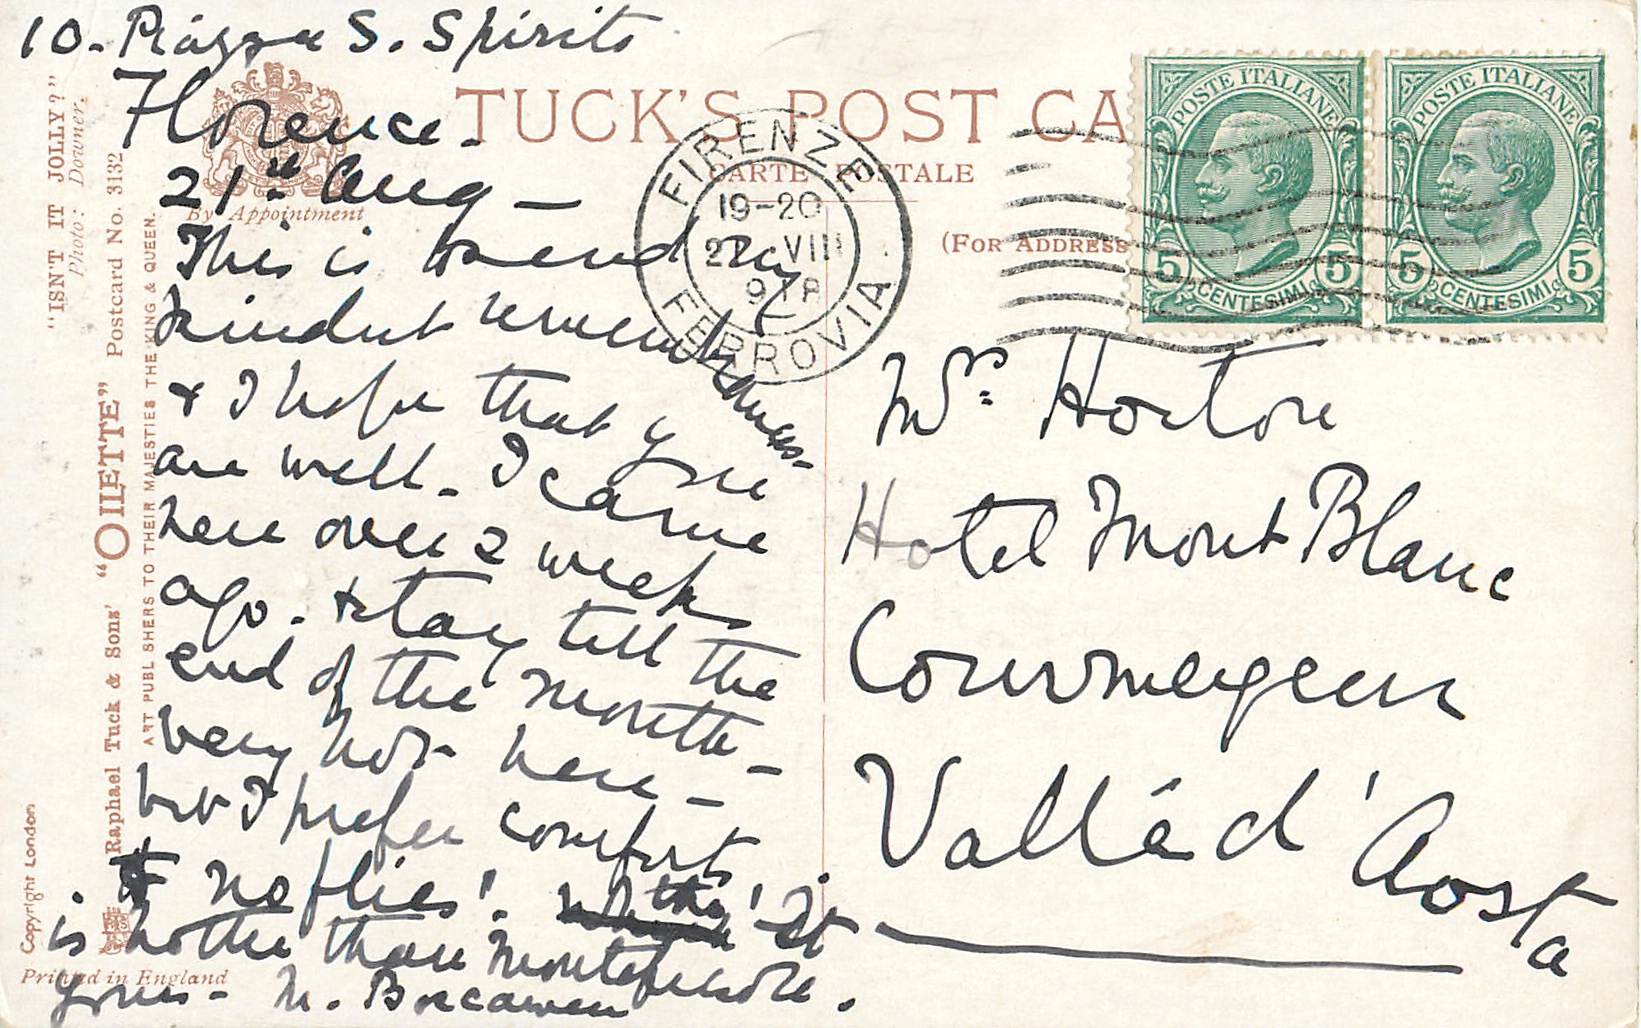 10. Piazza S. Spirito
Florence.
21st Aug —
This is to send my
kindest remembrances -
& I hope that you
are well. I came
here over 2 weeks
ago. & stay till the
end of the month —
very hot here —
but I prefer comfort
& no flies! tho' It
is hotter than
yours - M. Boscawen
TUCK'S POST CA
CARTE POSTALE
(FOR ADDRESS
By Appointment
"ISN'T IT JOLLY?"
Photo: Downer.
Raphael Tuck & Sons' "OILETTE" Postcard No. 3132
ART PUBLISHERS TO THEIR MAJESTIES THE KING & QUEEN.
Copyright London
Printed in England
FIRENZE
19-20
VIII
FERROVIA
POSTE ITALIANE
5 CENTESIMI 5
POSTE ITALIANE
5 CENTESIMI 5
Mrs. Horton
Hotel Mont Blanc
Courmeyeur
Vallé d'Aosta